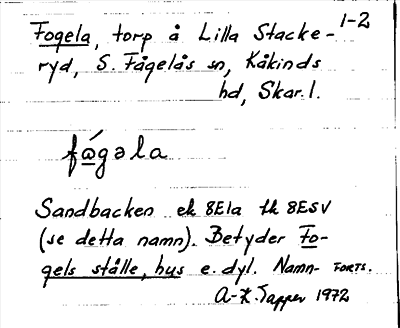 1-2
Fogela, torp å Lilla Stacke-
ryd, S. Fågelås sn, Kåkinds
hd, Skar. l.
fó̲gəla
Sandbacken ek 8E1a tk 8ESV
(se detta namn). Betyder Fo-
gels ställe, hus e. dyl. Namn- FORTS.
A-K. Tapper 1972